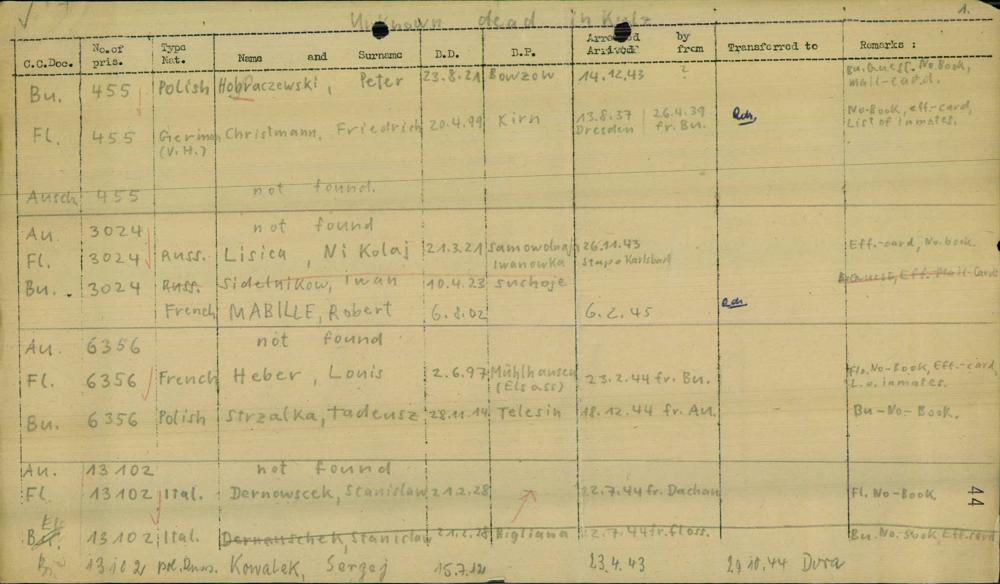 Unknown dead in Kulz
1.
C.C.Doc. No.of pris. Type Nat. Name and Surname D.D. D.P. Arrested Arrived by from Transferred to Remarks :
Bu. 455 Polish Hobraczewski, Peter 23.8.21 Bowzow 14.12.43 ? Bu.Quest. No.Book, mail-card.
Fl. 455 German (V.H.) Christmann, Friedrich 20.4.99 Kirn 13.8.37 Dresden 26.4.39 fr. Bu. Rdr. No-Book, eff.-card, List of inmates.
Ausch 455 not found.
Au. 3024 not found
Fl. 3024 Russ. Lisica, Nikolaj 21.3.21 Samowolnaja Iwanowka 26.11.43 Stapo Karlsbad Eff.-card, No.book.
Bu. 3024 Russ. Sidelnikow, Iwan 10.4.23 Suchoje Bu.Quest, Eff. Mail-Cards
French MABILLE, Robert 6.8.02 6.2.45 Rdr.
Au. 6356 not found
Fl. 6356 French Heber, Louis 2.6.97 Mühlhausen (Elsass) 23.2.44 fr. Bu. Flo. No-Book, Eff-card, L.o. inmates.
Bu. 6356 Polish Strzalka, Tadeusz 28.11.14 Telesin 18.12.44 fr. Au. Bu-No-Book.
Au. 13102 not found
Fl. 13102 Ital. Dernowscek, Stanislaw 21.2.28 22.7.44 fr. Dachau Fl. No-Book
44
13102 Ital. Dernauschek, Stanislaw 21.2.28 Bigliana 22.7.44 fr. Floss. Bu. No.-Book, Eff.card
Bu 13102 Kowalek, Sergej 15.7.12 23.4.43 29.10.44 Dora